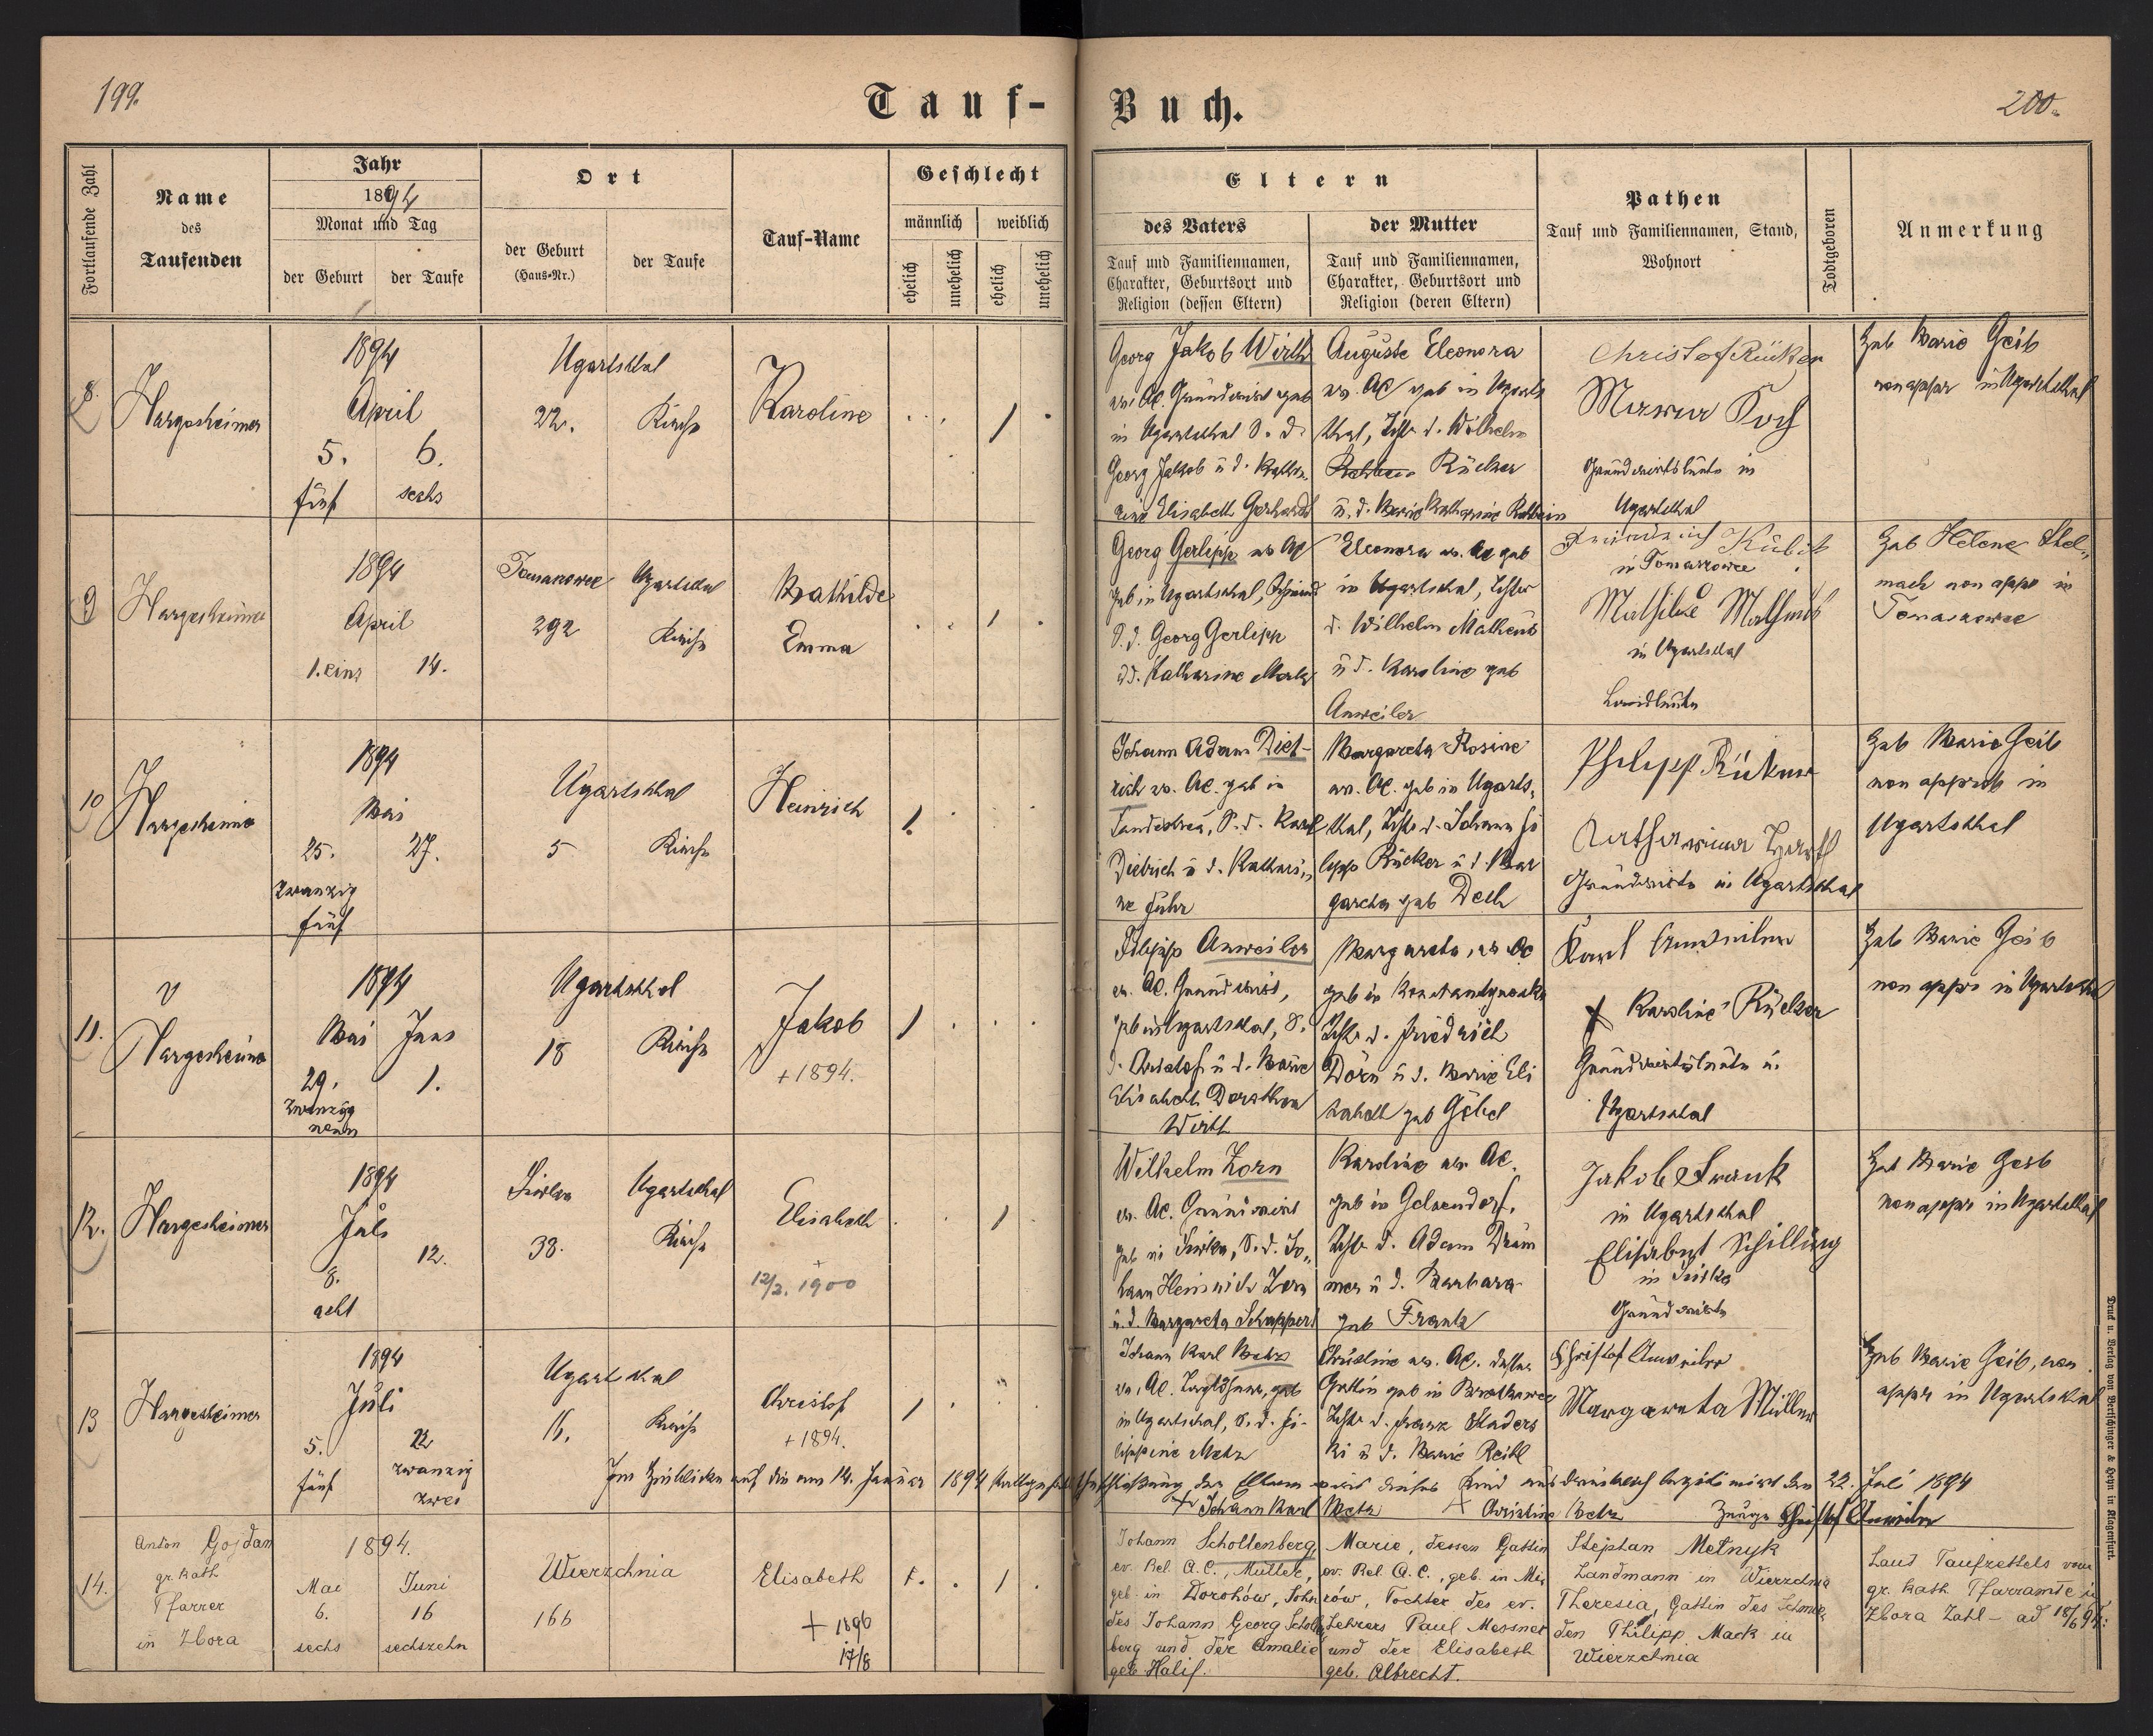 199.
200.
Tauf-
Buch.
Fortlaufende Zahl
Name
des
Taufenden
Jahr
1894
Monat und Tag
der Geburt
der Taufe
Ort
der Geburt
(Haus-Nr.)
der Taufe
Tauf-Name
Geschlecht
männlich
weiblich
ehelich
unehelich
ehelich
unehelich
Eltern
des Vaters
Tauf und Familiennamen,
Charakter, Geburtsort und
Religion (dessen Eltern)
der Mutter
Tauf und Familiennamen,
Charakter, Geburtsort und
Religion (deren Eltern)
Pathen
Tauf und Familiennamen, Stand,
Wohnort
Todtgeboren
Anmerkung
8.
Hargesheimer
1894
April
5. 6.
fünf sechs
Ugartsthal
22. Kirche
Karoline
Georg Jakob Wirth
ev. AC. Grundwirt geb
in Ugartsthal S. d.
Georg Jakob u d. Katha
rine Elisabeth Gerhardt
Auguste Eleonora
ev. AC geb in Ugarts
thal, Tchtr d. Wilhelm
Rücker
u. d. Marie Katharine
Christof Rücker
Koch
Grundwirtsleute in
Ugartsthal
Heb Marie Geib
non appr in Ugartsthal
9
Hargesheimer
1894
April
1. eins 14.
Tomaszowce Ugartsthal
292 Kirche
Mathilde
Emma
Georg Gerlipp ev AC
geb in Ugartsthal,
S. d. Georg Gerlipp
u d. Katharine
Eleonora ev. AC geb
in Ugartsthal, Tchtr
d. Wilhelm Matheus
u d. Karoline geb
Anweiler
in Tomaszowce
Mathilde Matheus
in Ugartsthal
Landleute
Heb Helene
mach non appr in
Tomaszowce
10
Hargesheimer
1894
Mai
25. 27.
zwanzig
fünf
Ugartsthal
5 Kirche
Heinrich
Johann Adam Diet-
rich ev. AC. geb in
Landestreu, S. d. Karl
Dietrich u d. Kathari,,
ne Fuhr
Margareta Rosine
ev. AC. geb in Ugarts,
thal, Tchtr d. Johann Fi
lipp Rücker u d. Mar
gareta geb Dech
Philipp Rücker
Katharina
Grundwirte in Ugartsthal
Heb Marie Geib
non approb in
Ugartsthal
11.
Hargesheimer
1894
Mai Juni
29. 1.
zwanzig
neun
Ugartsthal
18 Kirche
Jakob
+ 1894.
Filipp Anweiler
ev. AC. Grundwirt,
geb in Ugartsthal, S.
d. Christof u d. Marie
Elisabeth Dorothea
Wirth
Margareta, ev AC
geb in
Tchtr d. Friedrich
Dörn u d. Marie Eli
sabeth geb Göbel
Karl Anweiler
+ Karoline Rücker
Grundwirtsleute in
Ugartsthal
Heb Marie Geib
non appr in Ugartsthal
12.
Hargesheimer
1894
Juli
8. 12.
acht
Siwka Ugartsthal
38. Kirche
Elisabeth
+
12/2. 1900
Wilhelm Zorn
ev. AC. Grundwirt
geb in Siwka, S. d. Jo,,
hann Heinrich Zorn
u. d. Margareta Schappert
Karoline ev. AC.
geb in Gelsendorf,
Tchtr d. Adam
mer u d. Barbara
geb Frank
Jakob Frank
in Ugartsthal
Elisabet Schilling
in Siwka
Grundwirte
Heb Marie Geib
non appr in Ugartsthal
13
Hargesheimer
1894
Juli
5. 22
fünf zwanzig
zwei
Ugartsthal
Kirche
Christof
+ 1894.
Johann Karl Metz
ev. AC. Taglöhner, geb
in Ugartsthal, S. d. Fi-
lippine Metz
Christine ev. AC. dessen
Gattin geb in
Tchtr d. Franz
ki u d. Marie
Christof Anweiler
Margareta Müller
Heb Marie Geib, non
appr in Ugartsthal
Im Hinblicke auf die am 14. Januar 1894 Eheschließung der Eltern wird dieses Kind ausdrücklich legitimirt den 22. Juli 1894
+ Johann Karl Metz + Christine Metz Zeuge Christof Anweiler
14.
Anton Gojdan
gr. kath
Pfarrer
in Zbora
1894.
Mai Juni
6. 16
sechs sechszehn
Wierzchnia
166
Elisabeth
+ 1896
17/8
Johann Schollenberg,
ev. Rel. A. C., Müller,
geb. in Dorohów, Sohn
des Johann Georg Schollen
berg und der Amalie
geb. Halif.
Marie, dessen Gattin
ev. Rel. A. C., geb. in
rów, Tochter des ev.
Lehrers Paul Messner
und der Elisabeth
geb. Albrecht.
Stephan Melnyk
Landmann in Wierzchnia
Theresia, Gattin des
den Philipp Mack in
Wierzchnia
Laut Taufzettels vom
gr. kath. Pfarramte in
Zbora Zahl – ad 18/6 94.
Druck u. Verlag von Bertschinger & Heyn in Klagenfurt.